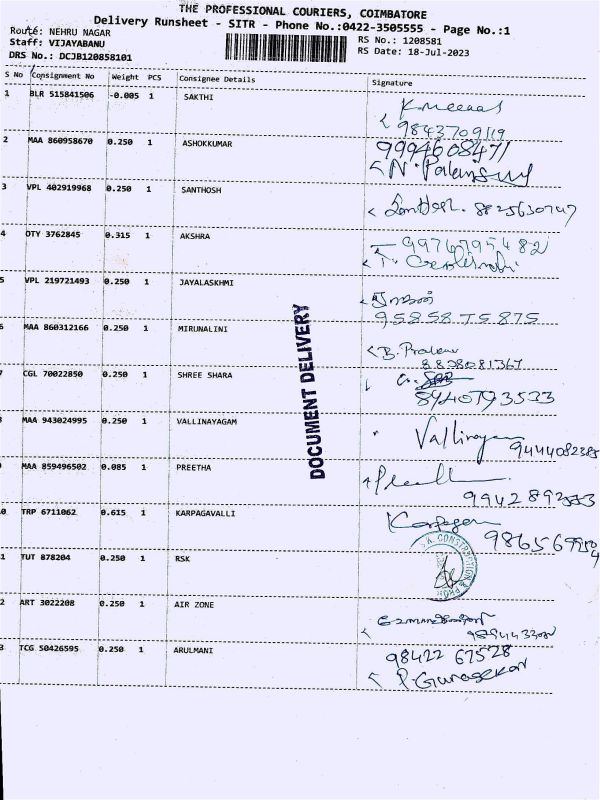 THE PROFESSIONAL COURIERS, COIMBATORE
Delivery Runsheet - SITR - Phone No.:0422-3505555 - Page No.:1
Route: NEHRU NAGAR
RS No.: 1208581
Staff: VIJAYABANU
RS Date: 18-Jul-2023
DRS No.: DCJB120858101
S No Consignment No Weight PCS Consignee Details Signature
1 BLR 515841506 -0.005 1 SAKTHI
9843709119
2 MAA 860958670 0.250 1 ASHOKKUMAR 9994608471
N.
3 VPL 402919968 0.250 1 SANTHOSH Santhosh. 8825630747
4 DTY 3762845 0.315 1 AKSHRA 9976795482
5 VPL 219721493 0.250 1 JAYALASKHMI
9585875875
6 MAA 860312166 0.250 1 MIRUNALINI B.
8838081367
7 CGL 70022850 0.250 1 SHREE SHARA
8940793533
8 MAA 943024995 0.250 1 VALLINAYAGAM Vallinayagam
9444082385
9 MAA 859496502 0.085 1 PREETHA
0 TRP 6711062 0.615 1 KARPAGAVALLI
1 TUT 878204 0.250 1 RSK
CONSTRUCTION
2 ART 3022208 0.250 1 AIR ZONE
3 TCG 50426595 0.250 1 ARULMANI 98422 67528
P. Gunasekar
DOCUMENT DELIVERY